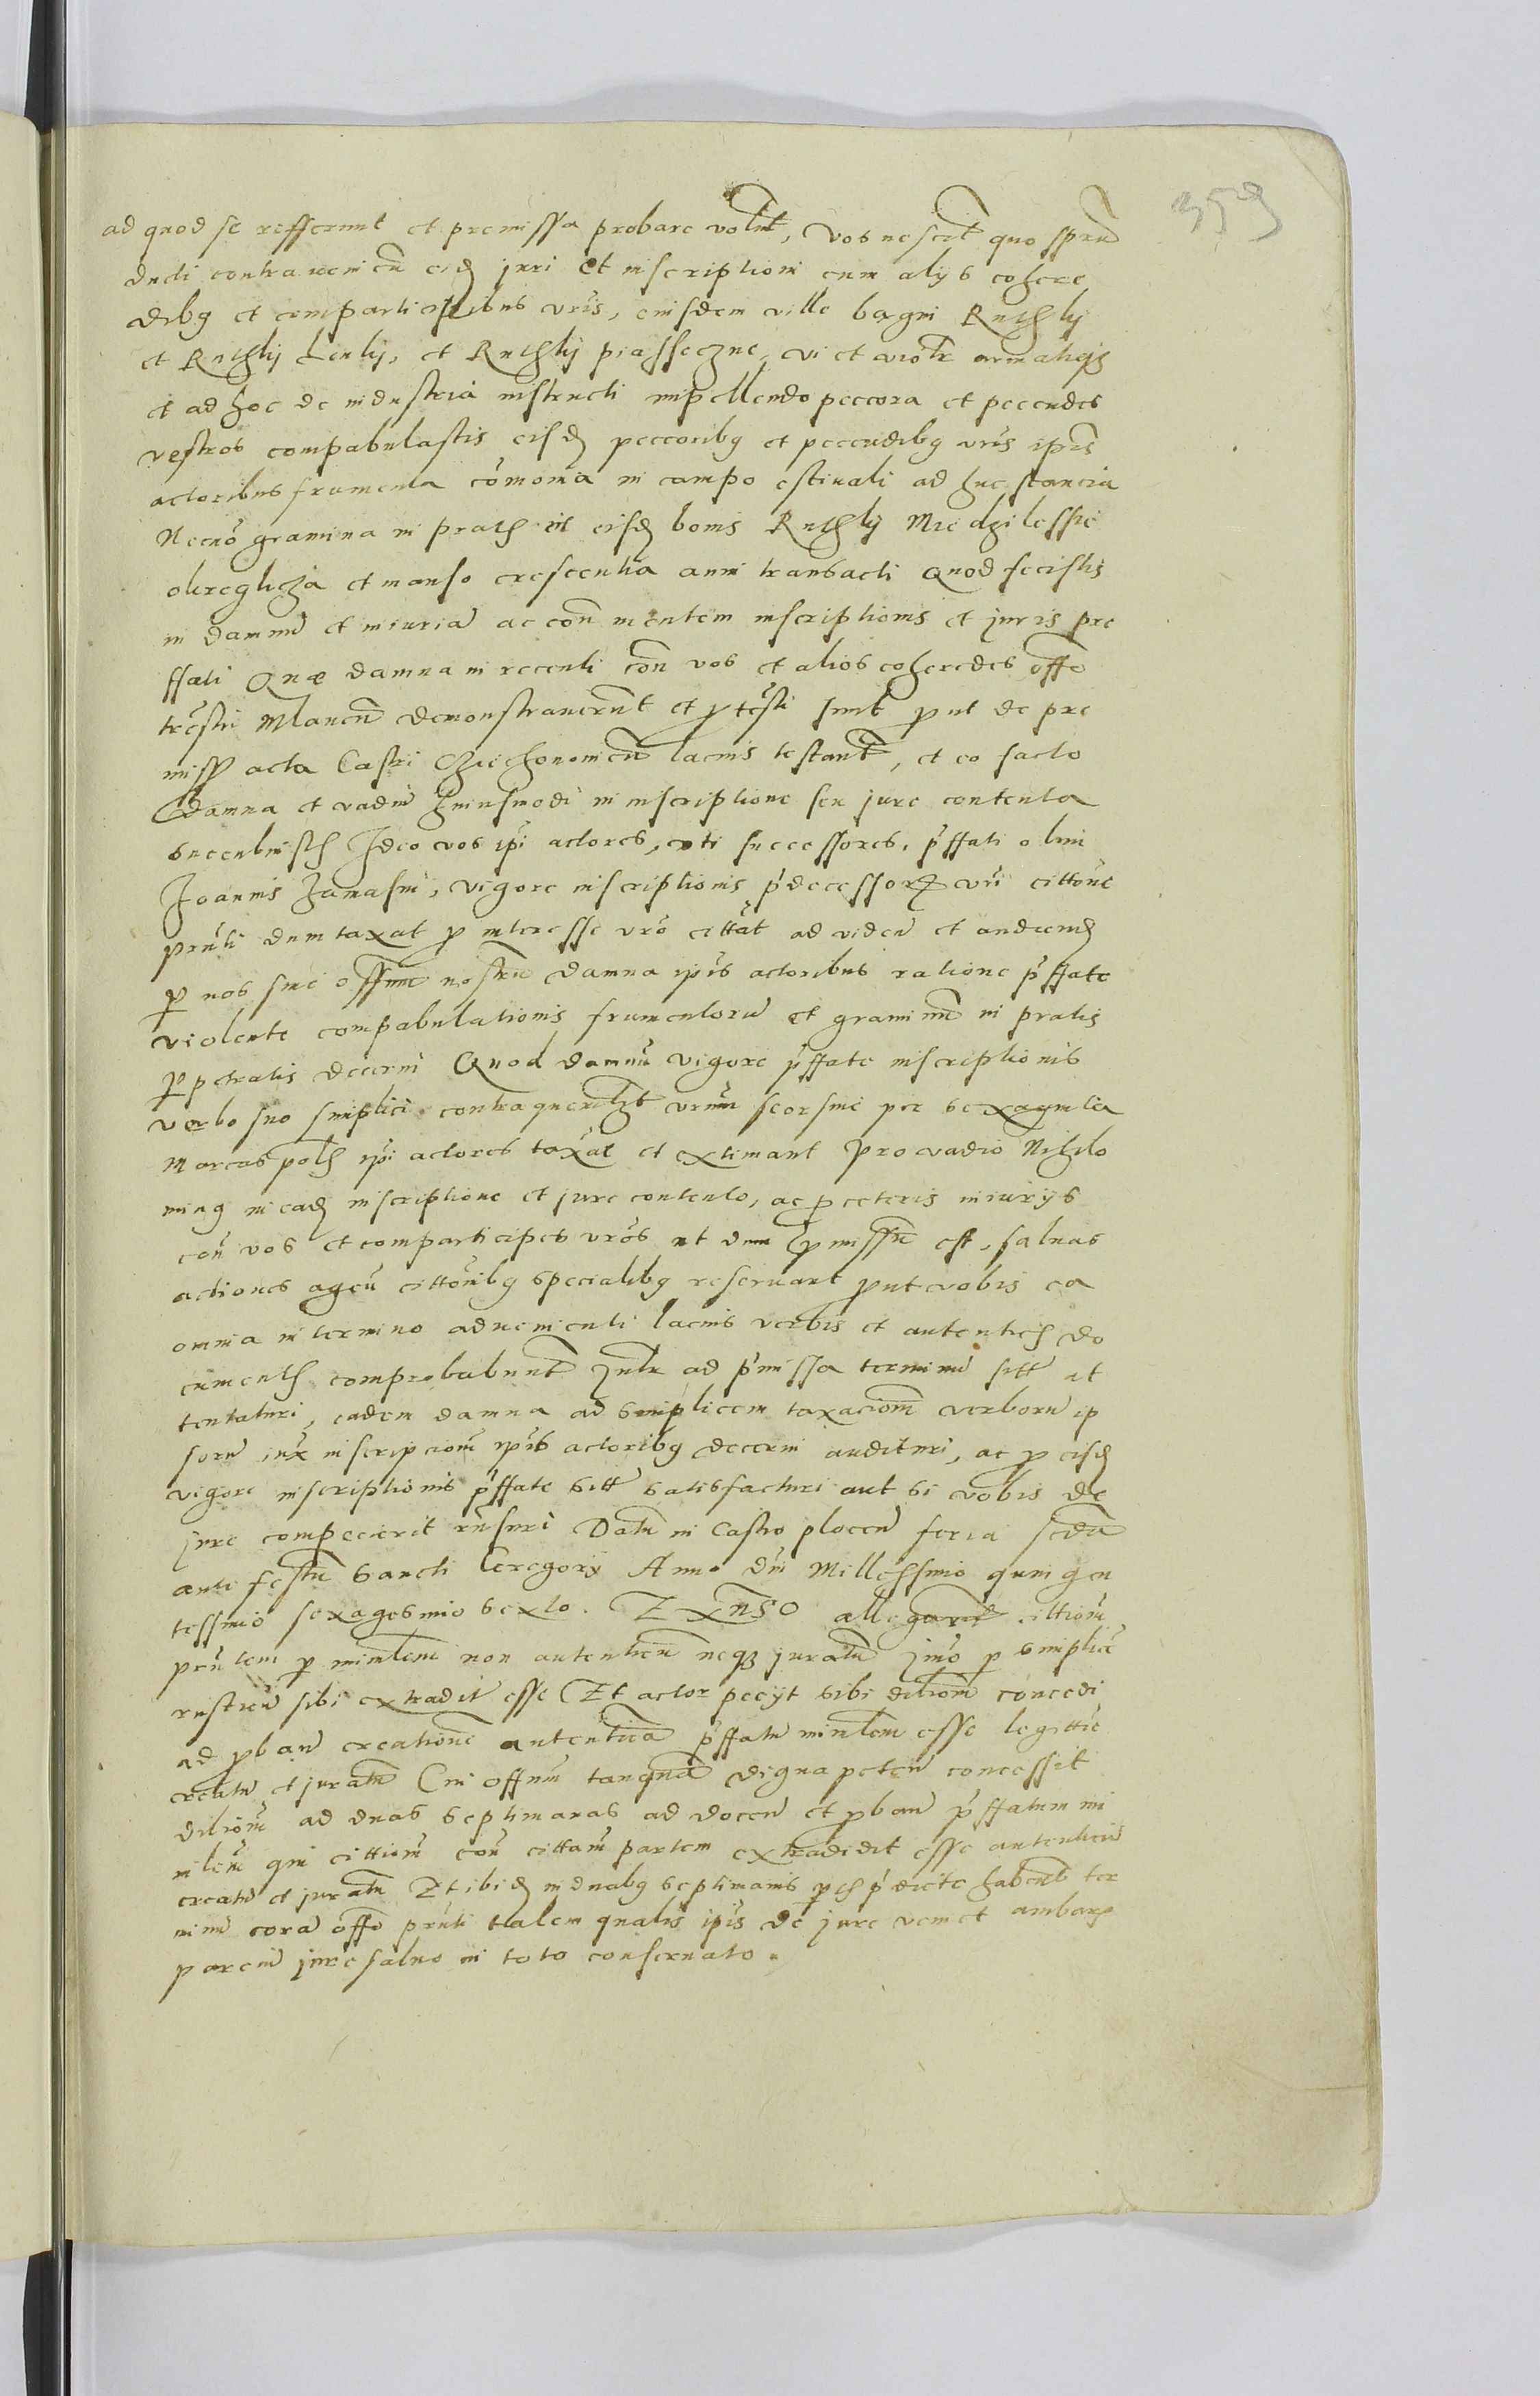 359
ad quod se refferunt et premissa probare volnt, Vos nescit quo spru
ducti contravenien eisd juri et inscriptioni cum alys cohere
dibq et comparticipibus vris, eiusdem ville bagni Ruthky
et Ruthky Lenky, et Ruthky piasseczne, vi et violtr armatis
et ad hoc de industria instructi impellendo peccora et peccudes
vestros compabulastis eisd peccoribq et peccudibq vris ipis
actoribus frumenta comonia in campo estivali ad huc stancia
Necno gramina in prath in eisd bonis Ruthky Miedzilessie
okreglicza et manso crescentia anni transacti Quod fecistis
in damnu et iniuria ac con mentem inscriptionis et juris pre
ffati Quæ damna in recenti con vos et alios coheredes offo
trestri Mlaven demonstraverunt et ptesti sunt put de pre
miss acta Castri Cziechonovien lacius testant, et eo facto
damna et vadiu huiusmodi in inscriptione seu jure contenta
succubuisth Ideo vos ipi actores, uti successores, pffati olim
Joannis , vigore inscriptionis pdecessor vri cittone
pnti dumtaxat p interesse vro cittat ad viden et audiend
p nos sive offium nostru damna ipis actoribus ratione pffate
violente compabulationis frumentoru et graminu in pratis
ppetratis decerni Quod damnu vigore pffate inscriptionis
verbo suo simplici contra unum seorsive per sexaginta
Marcas polh ipi actores taxat et extimant Pro vadio Nihilo
minq in ead inscriptione et jure contento, ac p ceteris iniurys
con vos et comparticipes vros ut dum pmissu est, salvas
actiones agen cittonibq specialibq reservant put vobis ea
omnia in termino advenienti lacius verbis et autentich do
cumenth comprobabunt Jntr ad pmissa terminu sitt at
tentaturi, eadem damna ad simplicem taxaciom verboru ip
soru iux inscripciom ipis actoribq decerni audituri, ac p eisd
vigore inscriptionis pffate sitt satisfacturi aut si vobis de
jure compecierit rnsuri Datu in Castro plocen feria scda
ante festu Sancti Gregory Anno dni Millessimo quingen
tessimo sexagesimo sexto. allegavit cittiom
pntem p minlem non autenticu neq juratu jmo p simplice
rusticu sibi extradit esse Et actor pecyt sibi diltiom concedi
ad pban creatione autentica pffatu minlem esse legittie
creatu et juratu Cui offium tanquam digna peten concessit
diltiom ad duas septimanas ad docen et pban pffatum mi
nlem qui cittiom con cittam partem extradidit esse autenticu
creatu et juratu Et ibid in duabq septimanis pth pdicte habent ter
minu cora offo pnti talem qualis ipis de jure veniet ambar
parciu jure salvo in toto conservato.